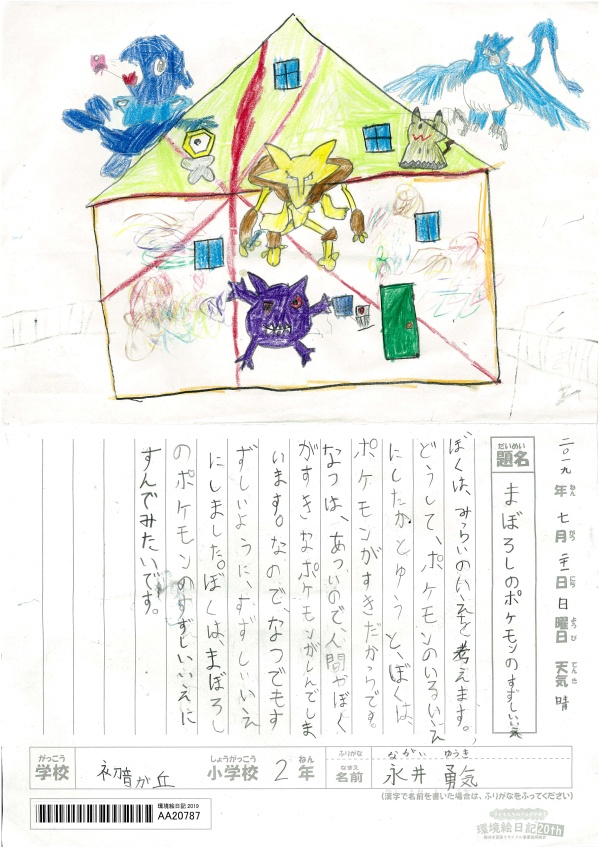 二〇一九年ねん七月がつ二十一日にち日曜日ようび天気てんき晴
だいめい
題名
まぼろしのポケモンのすずしい家
ぼくは、みらいのいえを考えます。
どうして、ポケモンのいるいえ
にしたかとゆうと、ぼくは、
ポケモンがすきだからです。
なつは、あついので、人間やぼく
がすきなポケモンがしんでしま
います。なので、なつでもす
ずしいように、すずしいいえ
にしました。ぼくは、まぼろし
のポケモンのすずしいいえに
すんでみたいです。
がっこう しょうがっこう ねん
学校 初音が丘 小学校 2年
ふりがな ながい ゆうき
なまえ
名前 永井 勇気
(漢字で名前を書いた場合は、ふりがなをふってください)
環境絵日記2019
AA20787
環境絵日記20th